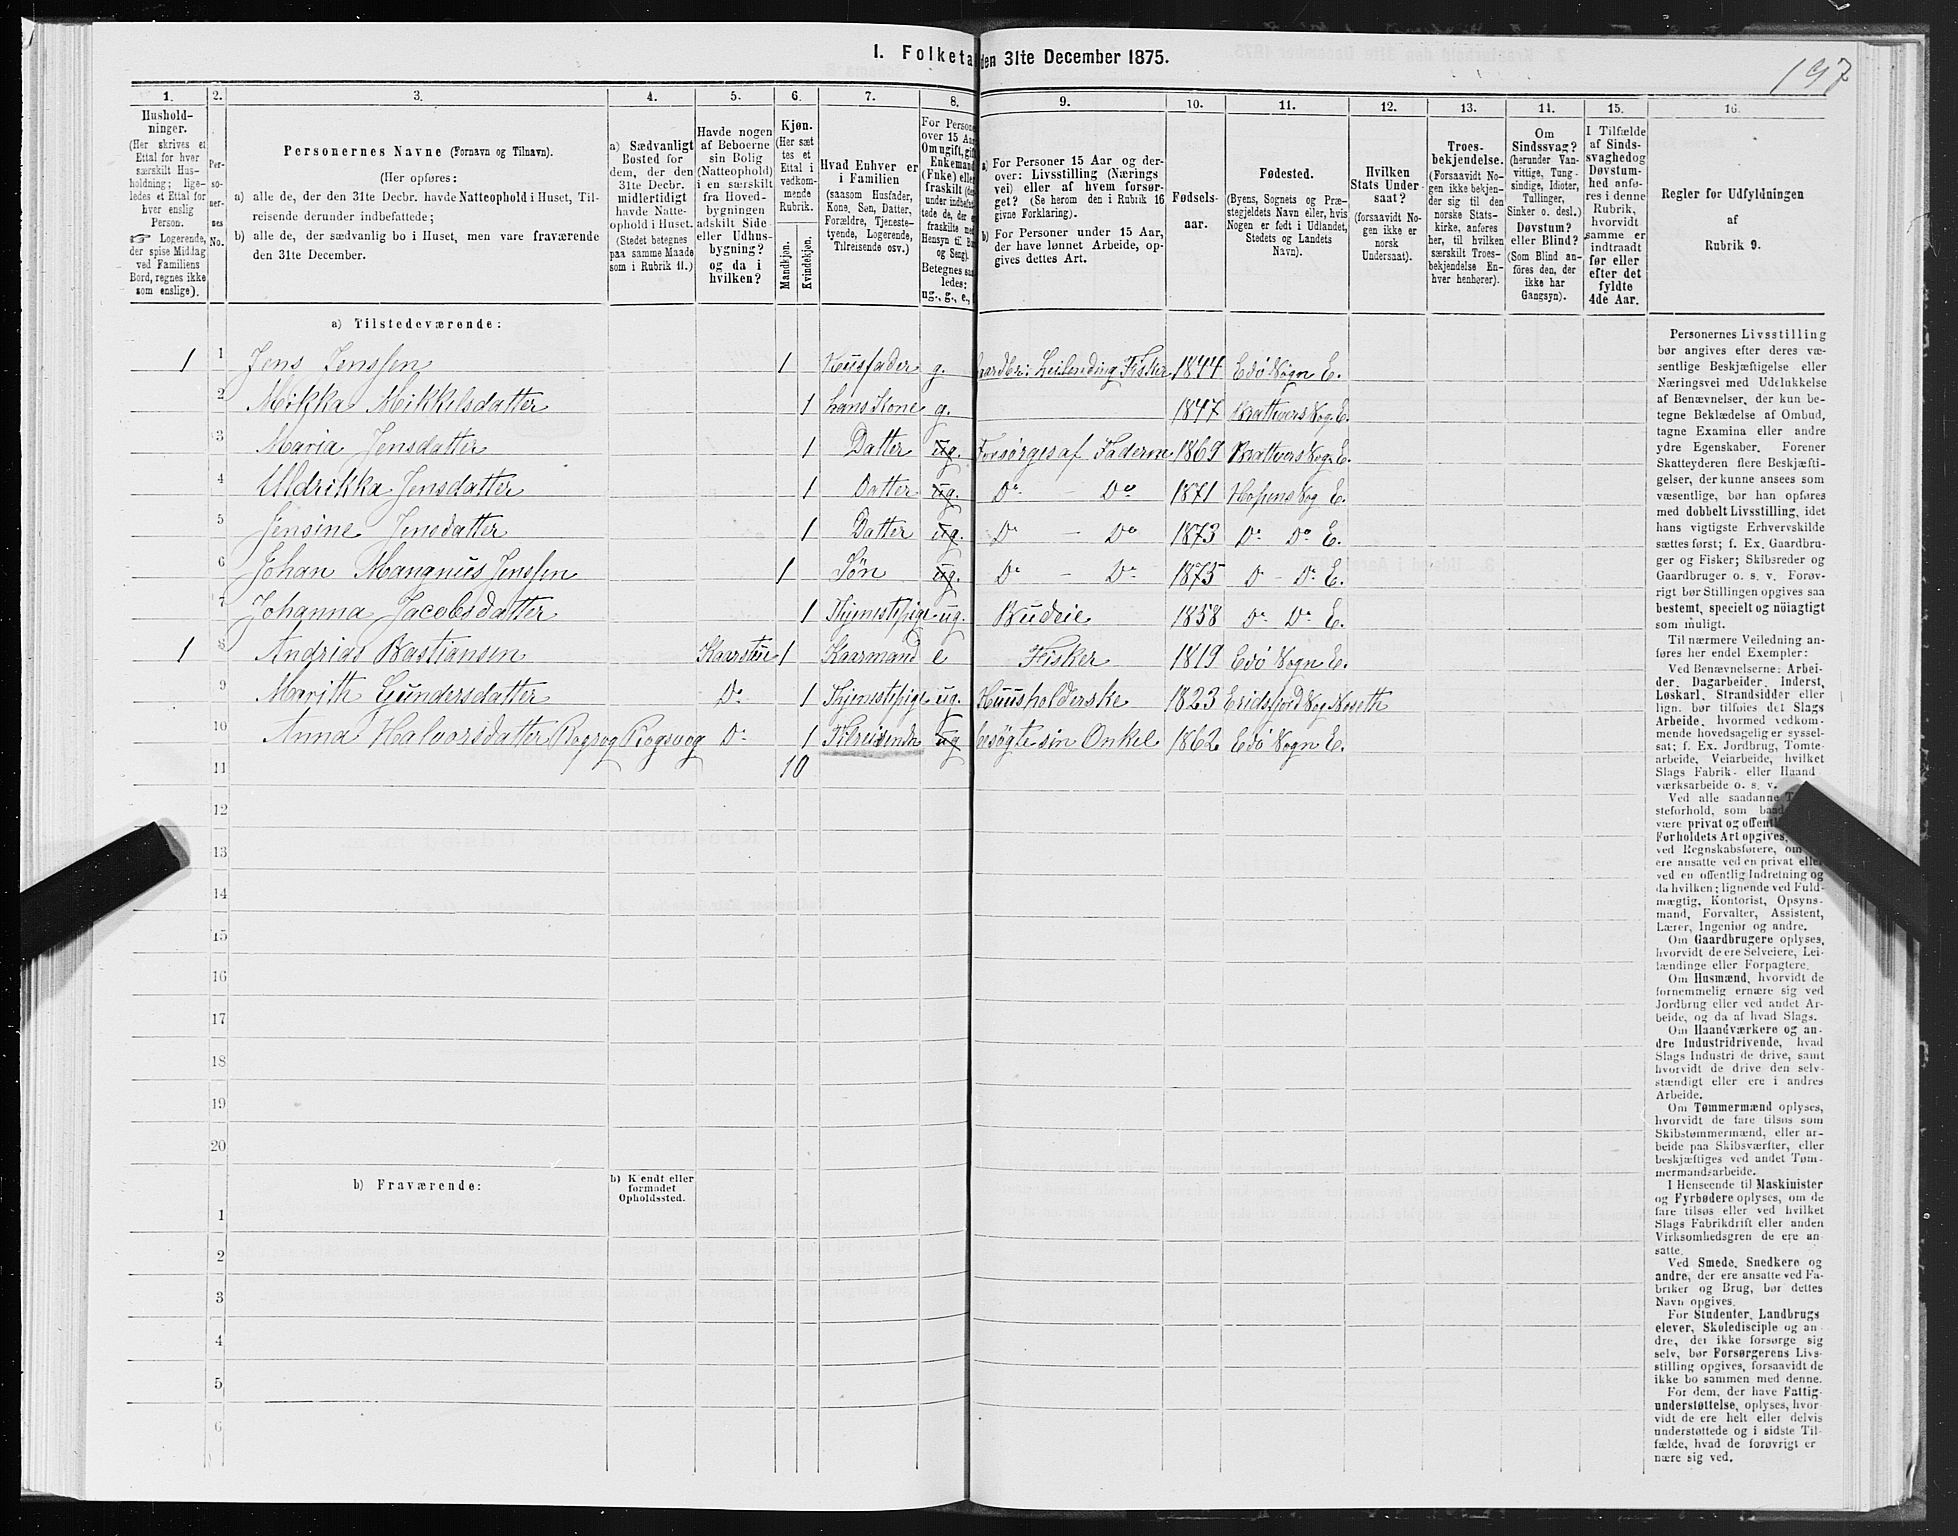 1. Folketa den 31te December 1875.
197
1.
2.
3.
4.
5.
6.
7.
8.
9.
10.
11.
12.
13.
14.
15.
16.
Hushold-
ninger.
(Her skrives et
Ettal for hver
særskilt Hus-
holdning; lige-
ledes et Ettal for
hver enslig
Person.
☞ Logerende,
der spise Middag
ved Familiens
Bord, regnes ikke
som enslige).
Per-
so-
ner-
nes
No.
Personernes Navne (Fornavn og Tilnavn).
(Her opføres:
a) alle de, der den 31te Decbr. havde Natteophold i Huset, Til-
reisende derunder indbefattede;
b) alle de, der sædvanlig bo i Huset, men vare fraværende
den 31te December.
a) Sædvanligt
Bosted for
dem, der den
31te Decbr.
midlertidigt
havde Natte-
ophold i Huset.
(Stedet betegnes
paa samme Maade
som i Rubrik 11.)
Havde nogen
af Beboerne
sin Bolig
(Natteophold)
i en særskilt
fra Hoved-
bygningen
adskilt Side
eller Udhus-
bygning?
og da i
hvilken?
Kjøn.
(Her sæt
tes et
Ettal i
vedkom-
mende
Rubrik.
Mandkjøn.
Kvindekjøn.
Hvad Enhver er
i Familien
(saasom Husfader,
Kone, Søn, Datter,
Forældre, Tjeneste-
tyende, Logerende,
Tilreisende osv.)
For Persone
over 15 Aar
Om ugift, gift
Enkemand
(Enke) elle
fraskilt (de
under indbefat
tede de, der e
fraskilte med
Hensyn til Bo
og Seng).
Betegnes saa
ledes:
ug., g., e.,
a) For Personer 15 Aar og der-
over: Livsstilling (Nærings
vei) eller af hvem forsør-
get? (Se herom den i Rubrik 16
givne Forklaring).
b) For Personer under 15 Aar,
der have lønnet Arbeide, op-
gives dettes Art.
Fødsels-
aar.
Fødested.
(Byens, Sognets og Præ-
stegjeldets Navn eller, hvis
Nogen er født i Udlandet,
Stedets og Landets
Navn).
Hvilken
Stats Under-
saat?
(forsaavidt No-
gen ikke er
norsk
Undersaat).
Troes-
bekjendelse.
(Forsaavidt No-
gen ikke bekjen-
der sig til den
norske Stats-
kirke, anføres
her, til hvilken
særskilt Troes-
bekjendelse En-
hver henhører).
Om
Sindssvag?
(herunder Van-
vittige, Tung-
sindige, Idioter,
Sinker o. desl.)
Døvstum?
eller Blind?
(Som Blind an-
føres den, der
ikke har
Gangsyn).
I Tilfælde
af Sinds-
svaghed og
Døvstum-
hed anfø-
res i denne
Rubrik,
hvorvidt
samme er
indtraadt
før eller
efter det
fyldte
4de Aar.
Regler for Udfyldningen
af
Rubrik 9.
a) Tilstedeværende:
1 1 Jens Jenssen 1 Huusfader g. aardbr: Leilending Fisker 1844 Edø Sogn E.
2 Mikka Mikkelsdatter 1 hans Kone g. 1847 Brattvers Sog. E.
3 Maria Jensdatter 1 Datter ug. Forsørges af Faderen 1869 Brattvers Sog. E.
4 Uldrikka Jensdatter 1 Datter ug. Do - Do 1871 Hopens Sog E.
5 Jensine Jensdatter 1 Datter ug. Do - Do 1873 Do Do E.
6 Johan Mangnus Jenssen 1 Søn ug. Do - Do 1875 Do - Do E.
7 Johanna Jacobsdatter 1 Thjenestepige ug. Budeie 1858 Do Do E.
1 8 Andrias Bastiansen Kaarstue 1 Kaarmand e Fisker 1819 Edø Sogn E.
9 Marith Gundersdatter Do 1 Thjenestepige ug. Huusholderske 1823 Eridsfjord Sog Næseth
10 Anna Halvorsdatter Rogsvog Do 1 Tilreisende ug besøgte sin Onkel 1862 Edø Sogn E.
11 10
12
13
14
15
16
17
18
19
20
b) Fraværende:
b) Kjendt eller
formodet
Opholdssted.
1
2
3
4
5
6
Personernes Livsstilling
bør angives efter deres væ-
sentlige Beskjæftigelse eller
Næringsvei med Udelukkelse
af Benævnelser, der kun be-
tegne Beklædelse af Ombud,
tagne Examina eller andre
ydre Egenskaber. Forener
Skatteyderen flere Beskjæfti-
gelser, der kunne ansees som
væsentlige, bør han opføres
med dobbelt Livsstilling, idet
hans vigtigste Erhvervskilde
sættes først; f. Ex. Gaardbru-
ger og Fisker; Skibsreder og
Gaardbruger o. s. v. Forøv-
rigt bør Stillingen opgives saa
bestemt, specielt og nöiagtigt
som muligt.
Til nærmere Veiledning an-
føres her endel Exempler:
Ved Benævnelserne: Arbei-
der, Dagarbeider, Inderst,
Løskarl, Strandsidder eller
lign. bør tilføies det Slags
Arbeide, hvormed vedkom-
mende hovedsagelig er syssel-
sat; f. Ex. Jordbrug, Tomte-
arbeide, Veiarbeide, hvilket
Slags Fabrik- eller Haand
værksarbeide o. s. v.
Ved alle saadanne
steforhold, som
være privat og offent
Forholdets Art opgives,
ved Regnskabsførere, om
ere ansatte ved en privat eller
ved en offentlig Indretning og
da hvilken; lignende ved Fuld-
mægtig, Kontorist, Opsyns-
mand, Forvalter, Assistent,
Lærer, Ingeniør og andre.
Om Gaardbrugere oplyses,
hvorvidt de ere Selveiere, Lei-
lændinge eller Forpagtere.
Om Husmænd, hvorvidt de
fornemmelig ernære sig ved
Jordbrug eller ved andet Ar-
beide, og da af hvad Slags.
Om Haandværkere og an-
dre Industridrivende, hvad
Slags Industri de drive, samt
hvorvidt de drive den selv-
stændigt eller ere i andres
Arbeide.
Om Tømmermænd oplyses,
hvorvidt de fare tilsøs som
Skibstømmermænd, eller ar-
beide paa Skibsværfter, eller
beskjæftiges ved andet Tøm-
mermandsarbeide.
I Henseende til Maskinister
og Fyrbødere oplyses, om de
fare tilsøs eller ved hvilket
Slags Fabrikdrift eller anden
Virksomhedsgren de ere an-
satte.
Ved Smede, Snedkere og
andre, der ere ansatte ved Fa-
briker og Brug, bør dettes
Navn opgives.
For Studenter, Landbrugs
elever, Skoledisciple og an-
dre, der ikke forsørge sig
selv, bør Forsørgerens Livs-
stilling opgives, forsaavidt de
ikke bo sammen med denne.
For dem, der have Fattig-
understøttelse, oplyses, hvor-
vidt de ere helt eller delvis
understøttede og i sidste Til-
fælde, hvad de forøvrigt er
nære sig ved.